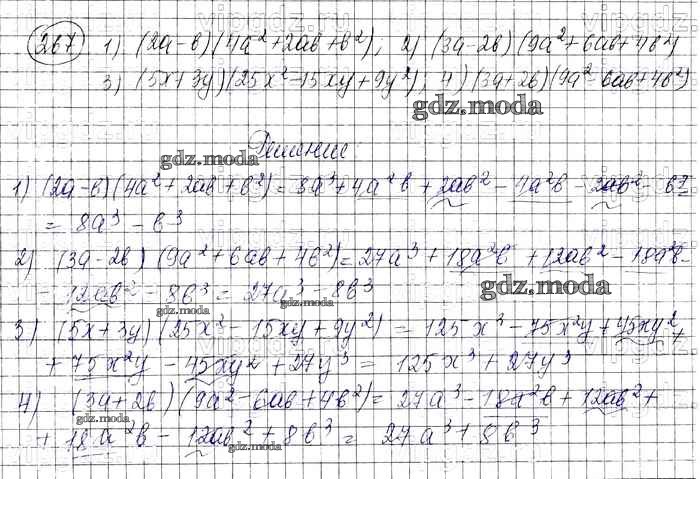 267 1) (2a-b)(4a²+2ab+b²); 2) (3a-2b)(9a²+6ab+4b²)
3) (5x+3y)(25x²-15xy+9y²); 4) (3a+2b)(9a²-6ab+4b²)
gdz.moda
Решение:
gdz.moda
1) (2a-b)(4a²+2ab+b²)=8a³+4a²b+2ab²-4a²b-2ab²-b³=
= 8a³-b³
2) (3a-2b)(9a²+6ab+4b²)=27a³+18a²b+12ab²-18a²b-
- 12ab²-8b³=27a³-8b³
gdz.moda
gdz.moda
gdz.moda
3) (5x+3y)(25x²-15xy+9y²)=125x³-75x²y+45xy²+
+75x²y-45xy²+27y³=125x³+27y³
gdz.moda
4) (3a+2b)(9a²-6ab+4b²)=27a³-18a²b+12ab²+
gdz.moda
+18a²b-12ab²+8b³=27a³+8b³
gdz.moda